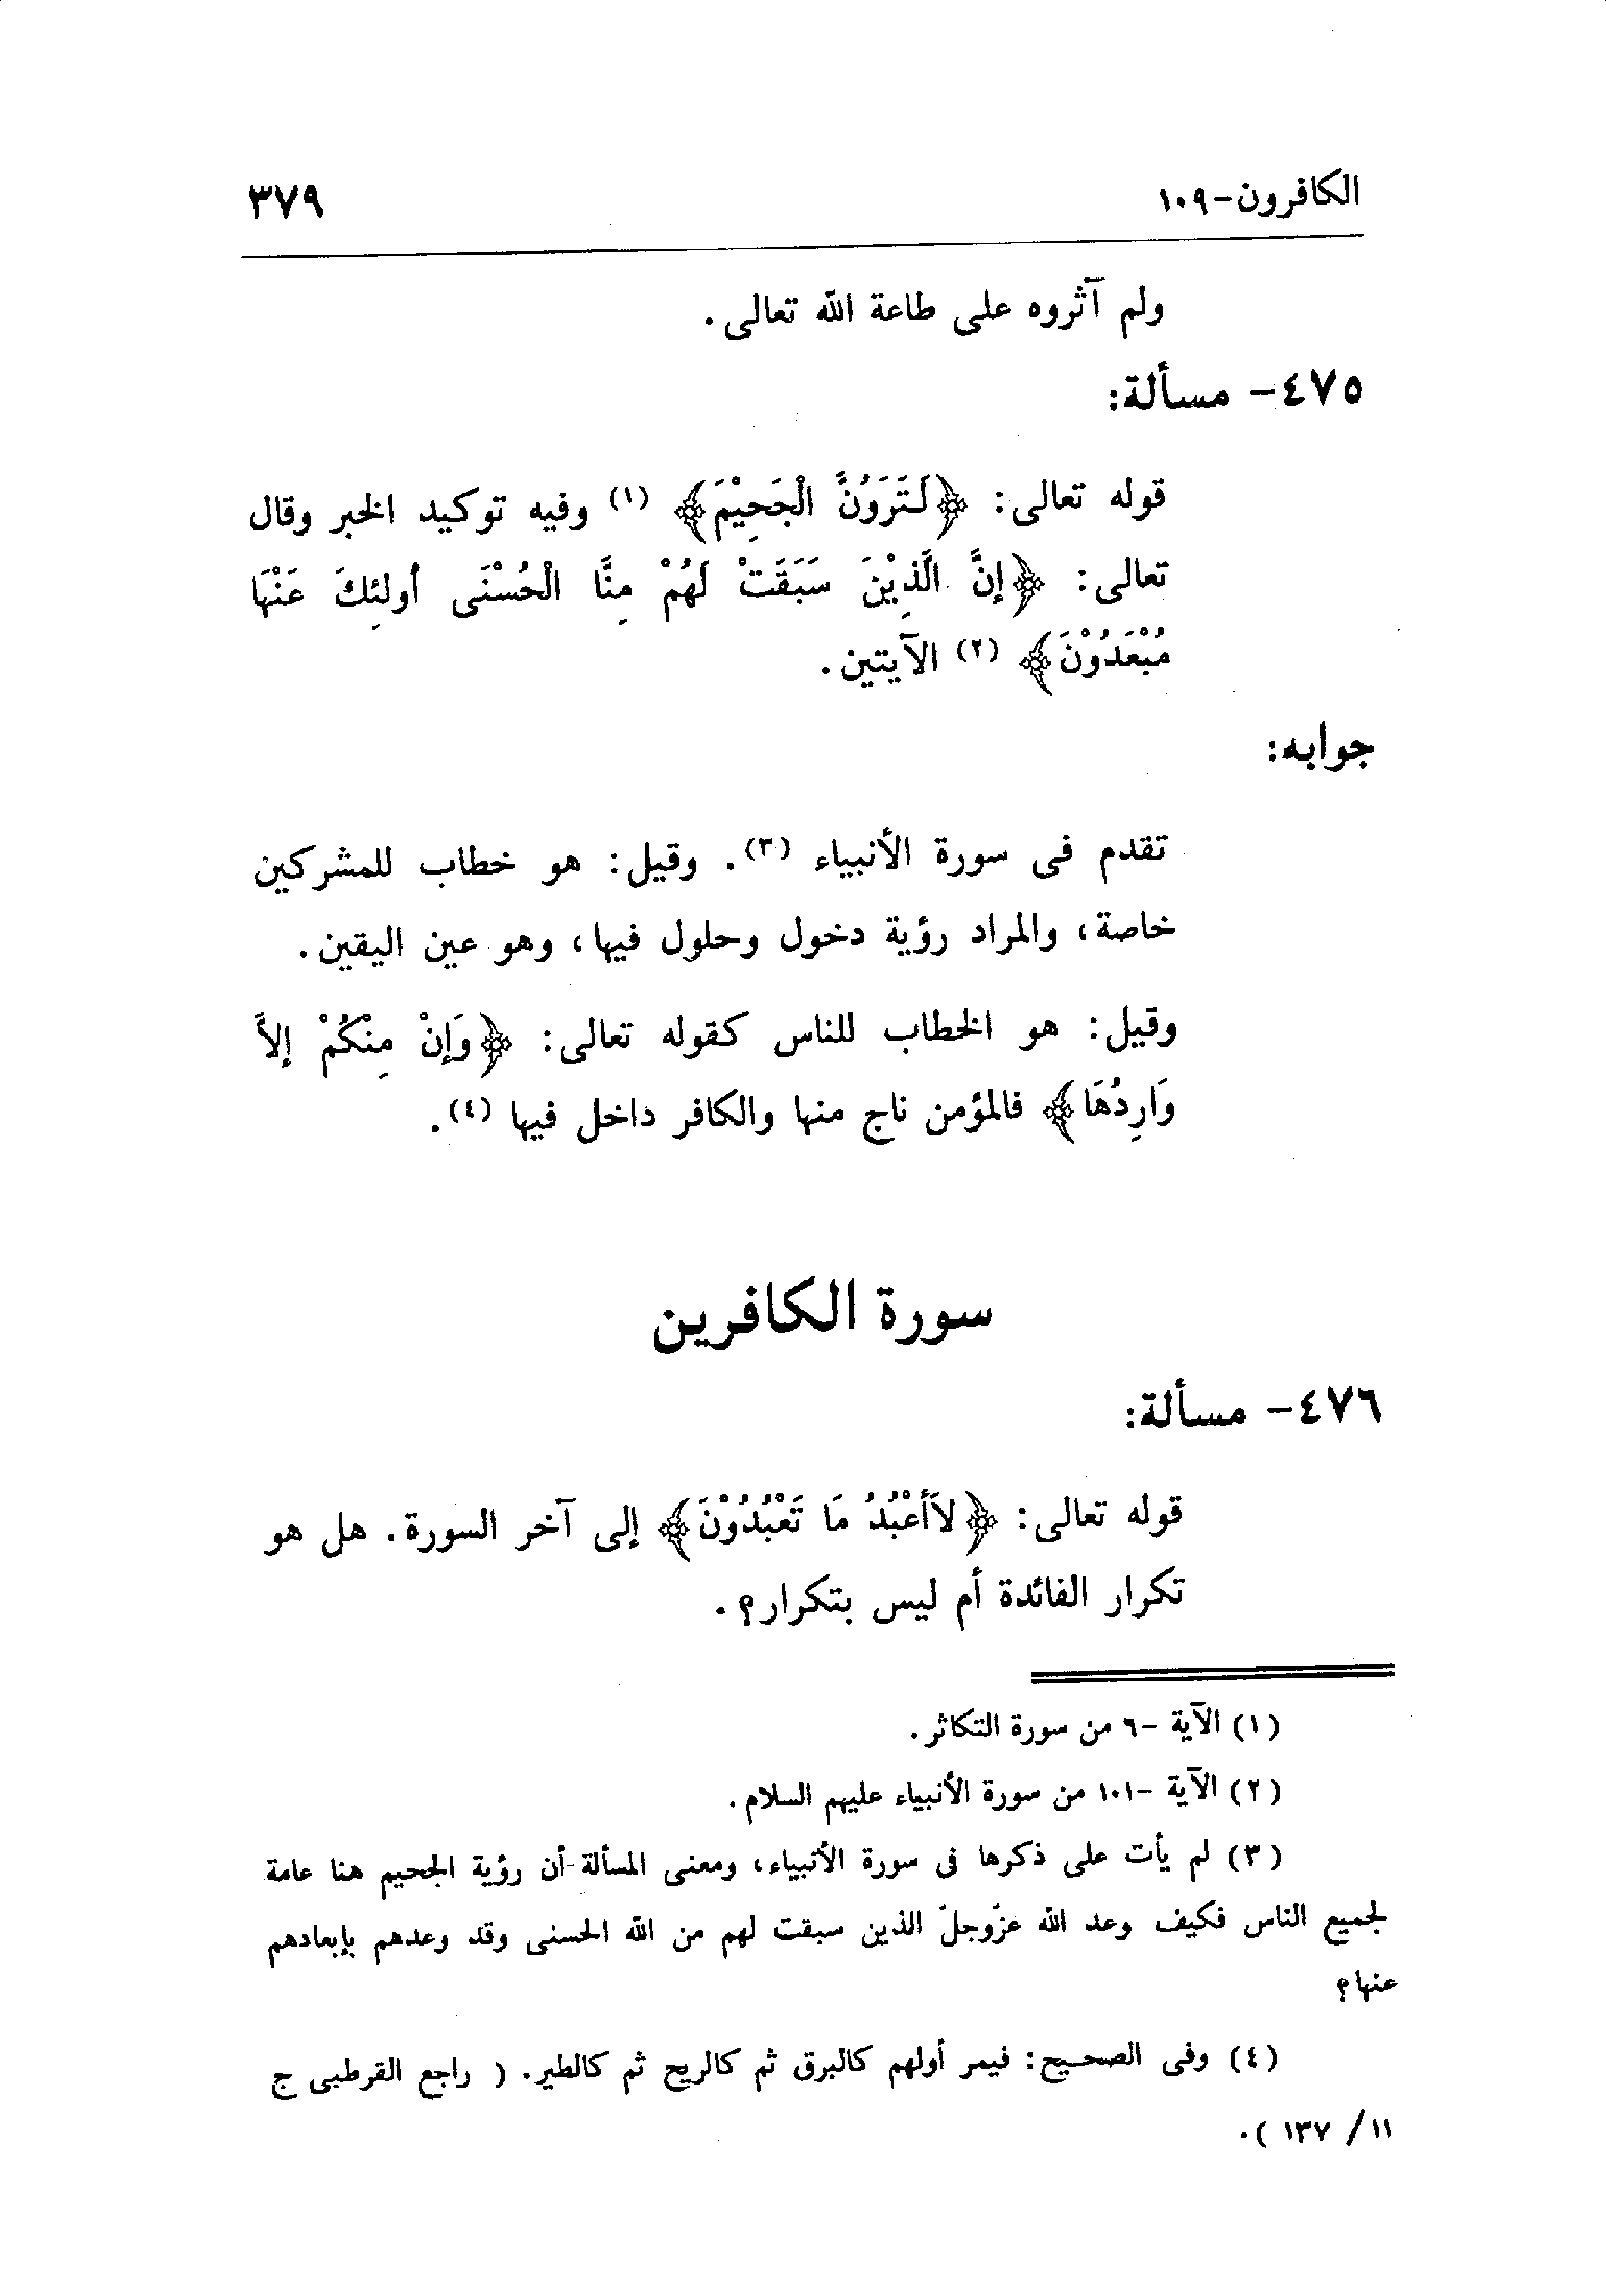 الكافرون-١٠٩ ٣٧٩
ولم آثروه على طاعة الله تعالى.
٤٧٥- مسألة:
قوله تعالى: ﴿لَتَرَوُنَّ الْجَحِيْمَ﴾ (١) وفيه توكيد الخبر وقال
تعالى: ﴿إنَّ الَّذِيْنَ سَبَقَتْ لَهُمْ مِنَّا الْحُسْنَى أُولئِكَ عَنْهَا
مُبْعَدُوْنَ﴾ (٢) الآيتين.
جوابه:
تقدم فى سورة الأنبياء (٣). وقيل: هو خطاب للمشركين
خاصة، والمراد رؤية دخول وحلول فيها، وهو عين اليقين.
وقيل: هو الخطاب للناس كقوله تعالى: ﴿وَإنْ مِنْكُمْ إلاَّ
وَارِدُهَا﴾ فالمؤمن ناج منها والكافر داخل فيها (٤).
سورة الكافرين
٤٧٦- مسألة:
قوله تعالى: ﴿لاَأَعْبُدُ مَا تَعْبُدُوْنَ﴾ إلى آخر السورة. هل هو
تكرار الفائدة أم ليس بتكرار؟.
(١) الآية -٦ من سورة التكاثر.
(٢) الآية -١٠١ من سورة الأنبياء عليهم السلام.
(٣) لم يأت على ذكرها فى سورة الأنبياء، ومعنى المسألة-أن رؤية الجحيم هنا عامة
لجميع الناس فكيف وعد الله عزّوجلّ الذين سبقت لهم من الله الحسنى وقد وعدهم بإبعادهم
عنها؟
(٤) وفى الصحيح: فيمر أولهم كالبرق ثم كالريح ثم كالطير. ( راجع القرطبى ج
١١/ ١٣٧ ).